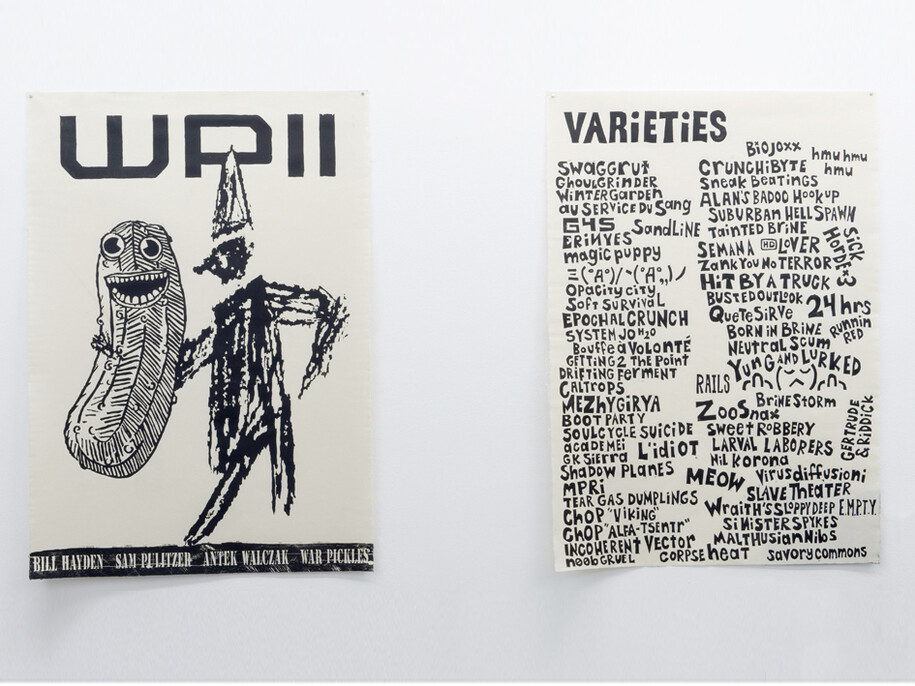 WPII
BILL HAYDEN SAM PULITZER ANTEK WALCZAK WAR PICKLES
VARiETiES
SWAGGRUT
GHOULGRiNDER
WiNTERGARDEN
au SERVICE DU Sang
G4S
SandLiNE
ERiNYES
magic puppy
OPacity city
Soft SURViVaL
EPOCHAL CRUNCH
SYSTEM JO H2O
Bouffe à VOLONTÉ
GETTING 2 THE Point
DRiFTiNG FERMENT
CALTROPS
MEZHYGiRYA
BOOT PARTY
SOULCYCLE SUiCiDE
acaDEMEi
L'idiOT
GK Sierra
SHADOW PLANES
MPRi
TEAR GAS DUMPLINGS
CHOP "VIKING"
CHOP "ALFA-TSENTR"
INCOHERENT VECTOR
noobGRUEL
CORPSE heat
BiOJOXX
hmu hmu
hmu
CRUNCHiBYTE
Sneak BEATINGS
ALAN'S BADOO HOOKUP
SUBURBAN HELLSPAWN
TaiNTED BRiNE
SICK
SEMANA HD LOVER
ZANK YOU NO TERROR
HiT BY A TRUCK
BUSTED OUTLOOK
24 hrs
QUETE SiRVE
BORN iN BRiNE
RUNNiN
RED
NEUTRAL SCUM
YUNG AND LURKED
RAILS
BRiNE STORM
ZOOSnax
SWEET ROBBERY
GERTRUDE
& RiDDICK
LARVAL LABORERS
Nil Korona
MEOW
Virusdiffusioni
SLAVE THEATER
WRAITH'S SLOPPY DEEP E.M.P.T.Y.
SiNISTER SPYKES
MALTHUSiAN Nilbs
savory commons